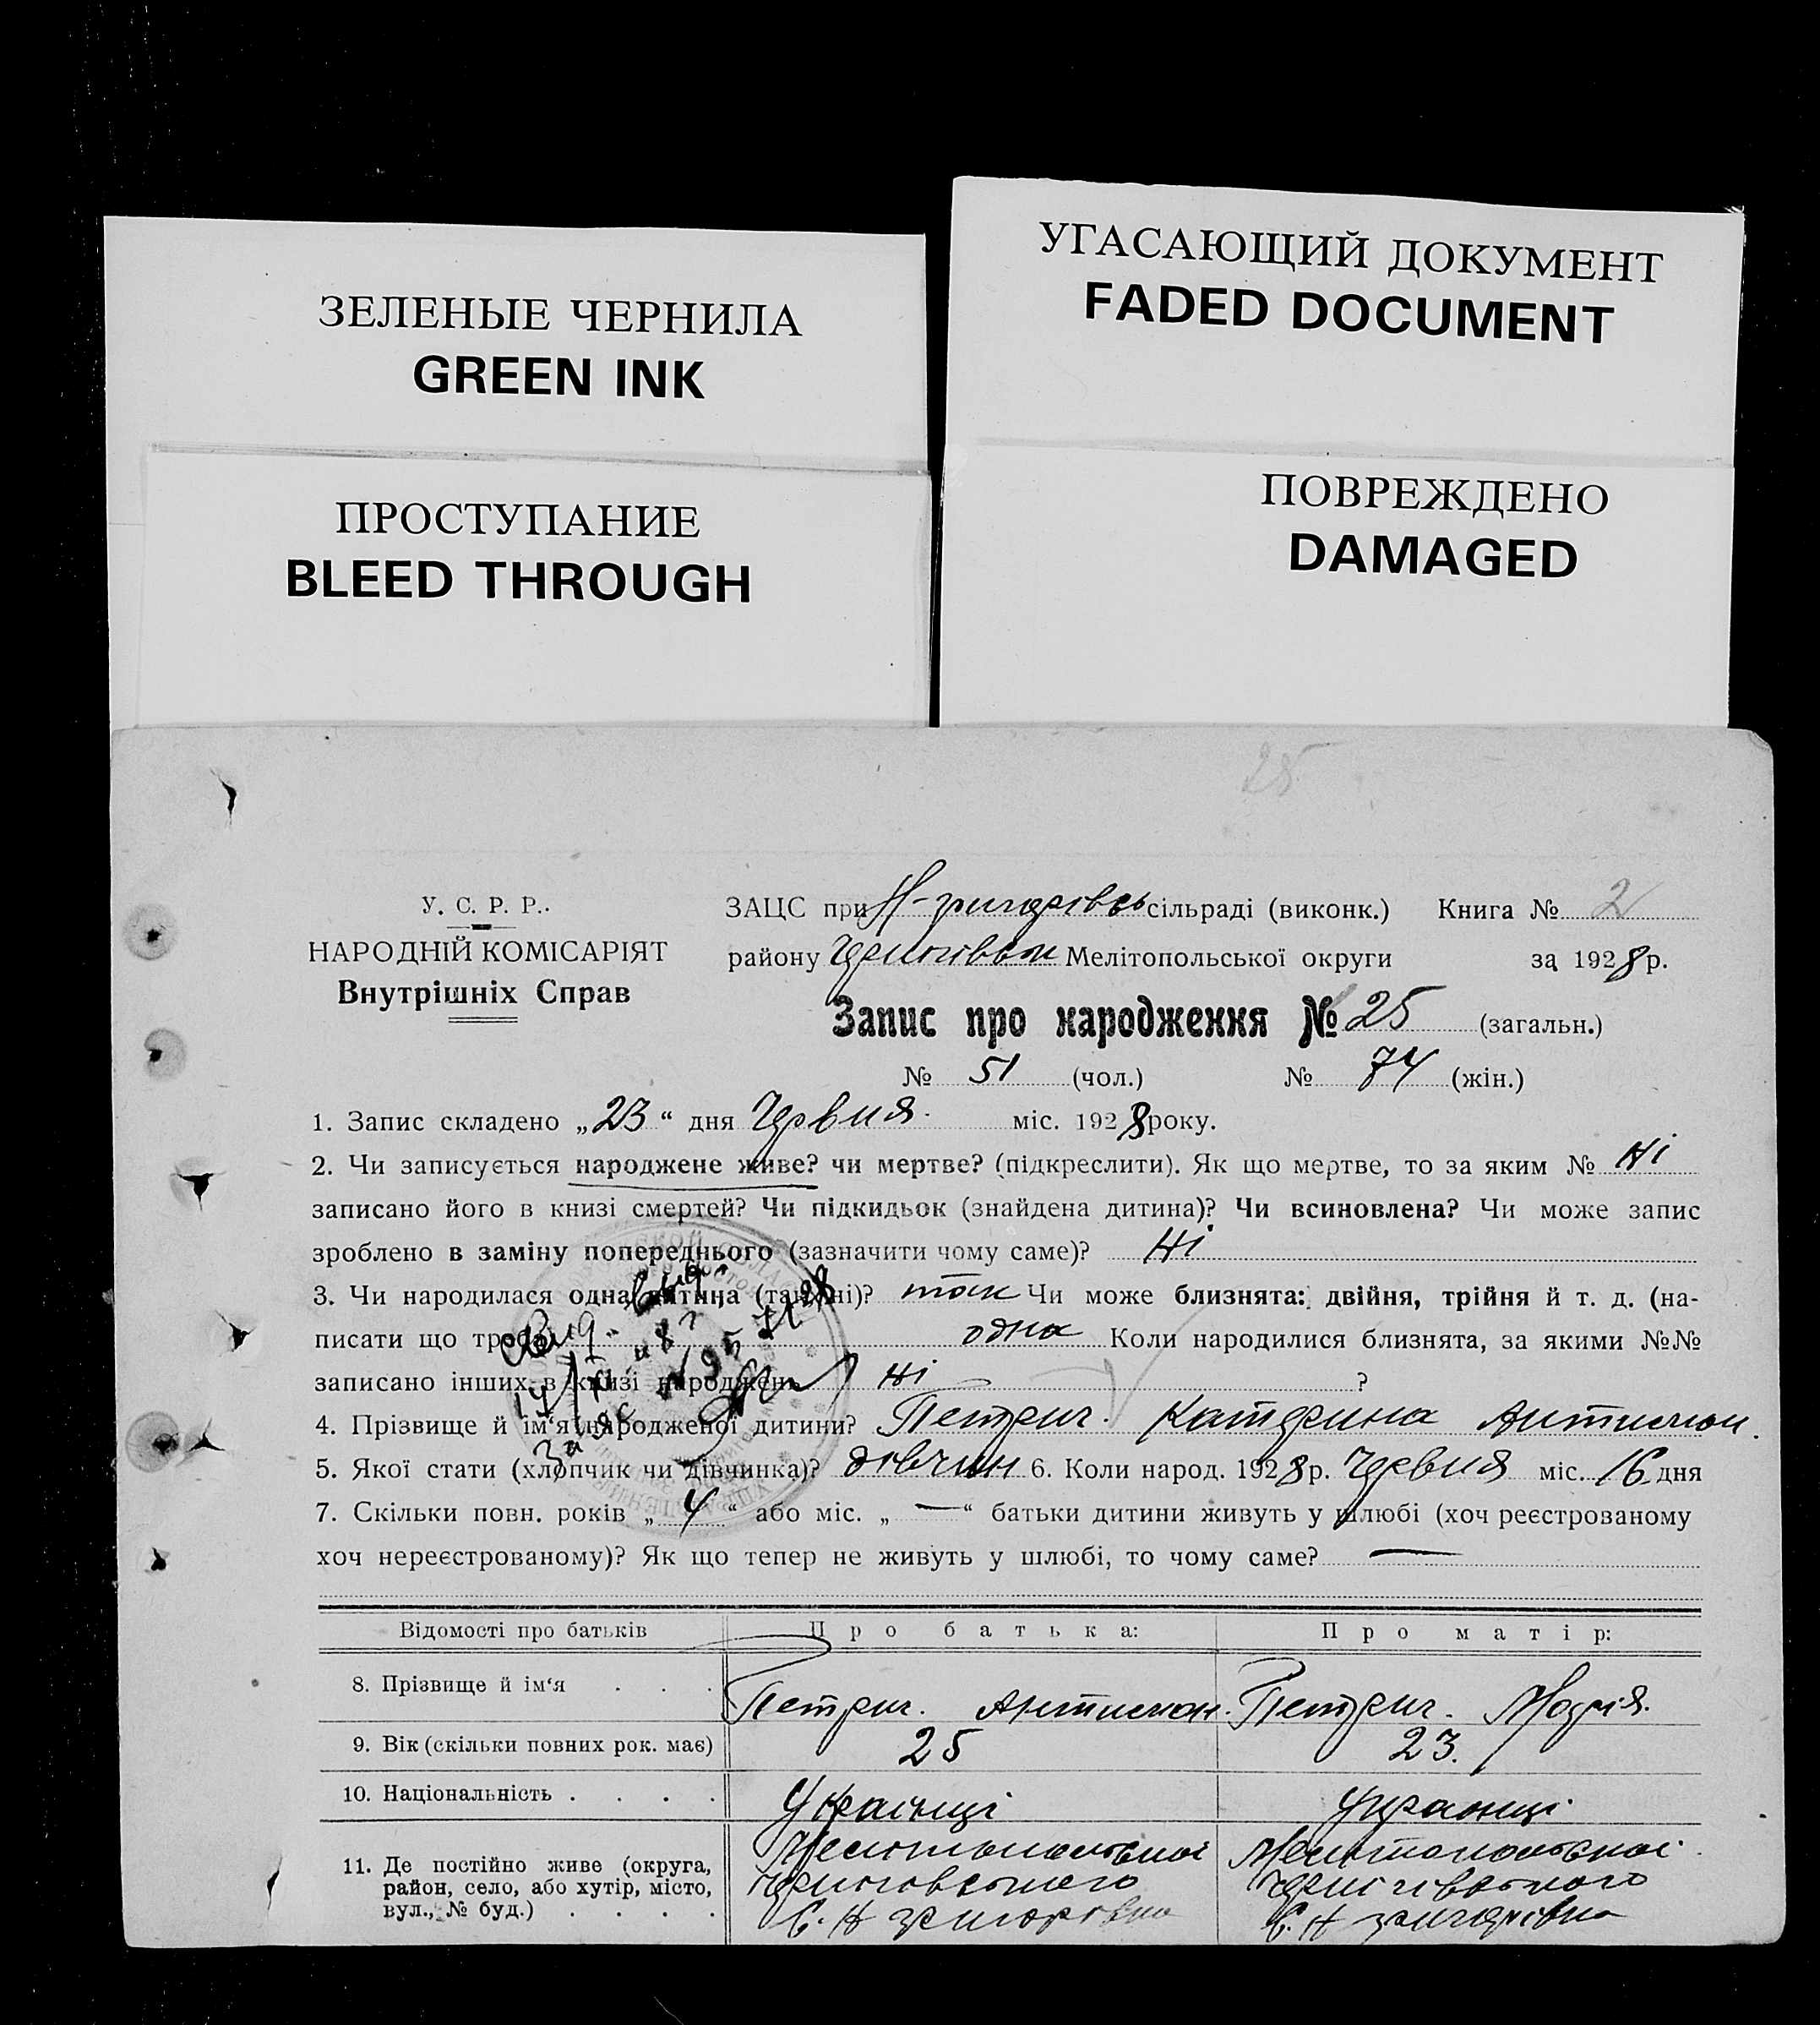 УГАСАЮЩИЙ ДОКУМЕНТ
FADED DOCUMENT
ЗЕЛЕНЫЕ ЧЕРНИЛА
GREEN INK
ПОВРЕЖДЕНО
DAMAGED
ПРОСТУПАНИЕ
BLEED THROUGH
25
У. С. Р. Р.
НАРОДНІЙ КОМІСАРІЯТ
Внутрішніх Справ
ЗАЦС при Н-григорівсь сільраді (виконк.) Книга № 2
району Мелітопольської округи за 1928 р.
Запис про народження № 25 (загальн.)
№ 51 (чол.) № 74 (жін.)
1. Запис складено „23“ дня Червня міс. 1928 року.
2. Чи записується народжене живе? чи мертве? (підкреслити). Як що мертве, то за яким № Ні
записано його в книзі смертей? Чи підкидьок (знайдена дитина)? Чи всиновлена? Чи може запис
зроблено в заміну попереднього (зазначити чому саме)? Ні
3. Чи народилася одна дитина (так, ні)? так Чи може близнята: двійня, трійня й т. д. (на-
писати що треба) одна Коли народилися близнята, за якими №№
записано інших в книзі народжень ні ?
4. Прізвище й ім‘я народженої дитини? Петрич. Катерина
5. Якої стати (хлопчик чи дівчинка)? дівчин 6. Коли народ. 1928 р. Червня міс. 16 дня
7. Скільки повн. років „4“ або міс. „—“ батьки дитини живуть у шлюбі (хоч реєстрованому
хоч нереєстрованому)? Як що тепер не живуть у шлюбі, то чому саме? —
Відомості про батьків Про батька: Про матір:
8. Прізвище й ім‘я . . . Петрич. Петрич. Марія.
9. Вік (скільки повних рок. має) 25 23.
10. Національність . . . . Українці Українці
11. Де постійно живе (округа, Мелітопольської Мелітопольської
район, село, або хутір, місто, Чернігівського Чернігівського
вул., № буд.) . . . . С. Н григорівка С. Н григорівка